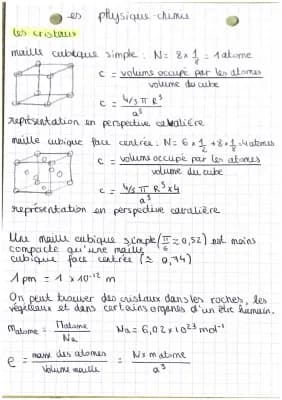 es physique-chimie
les cristaux
maille cubique simple : N = 8 x 1/8 = 1 atome
c = volume occupé par les atomes / volume du cube
c = 4/3 π R³ / a³
représentation en perspective cavalière
maille cubique face centrée : N = 6 x 1/2 + 8 x 1/8 = 4 atomes
c = volume occupé par les atomes / volume du cube
c = 4/3 π R³ x 4 / a³
représentation en perspective cavalière
Une maille cubique simple (π/6 ≈ 0,52) est moins
compacte qu'une maille
cubique face centrée (≈ 0,74)
1 pm = 1 x 10⁻¹² m
On peut trouver des cristaux dans les roches, les
végétaux et dans certains organes d'un être humain.
m atome = M atome / Na Na = 6,02 x 10²³ mol⁻¹
ρ = masse des atomes / Volume maille = N x m atome / a³